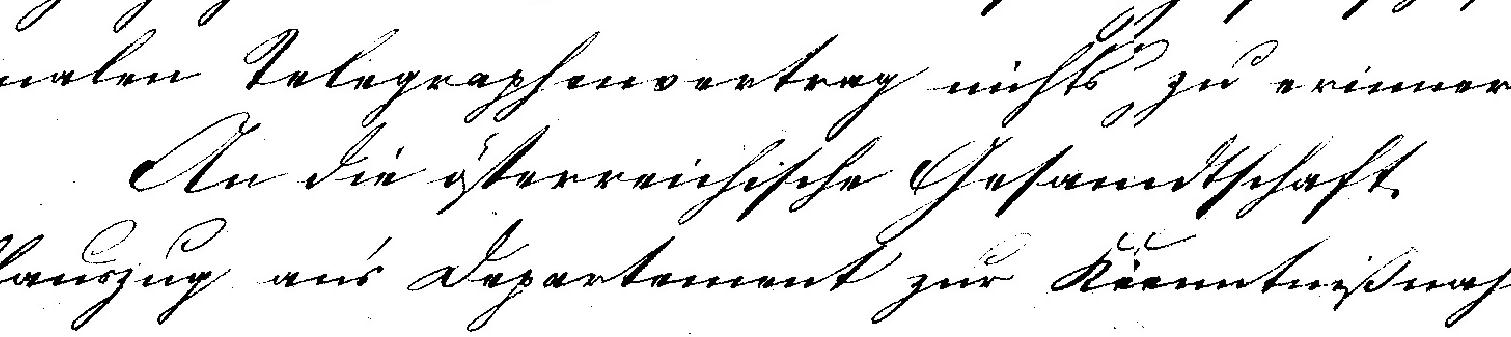 nalen Telegraphenvertrag nichts zu erinner
An die österreichische Gesandtschaft.
lauszug an's Departement zur Kenntnißnah